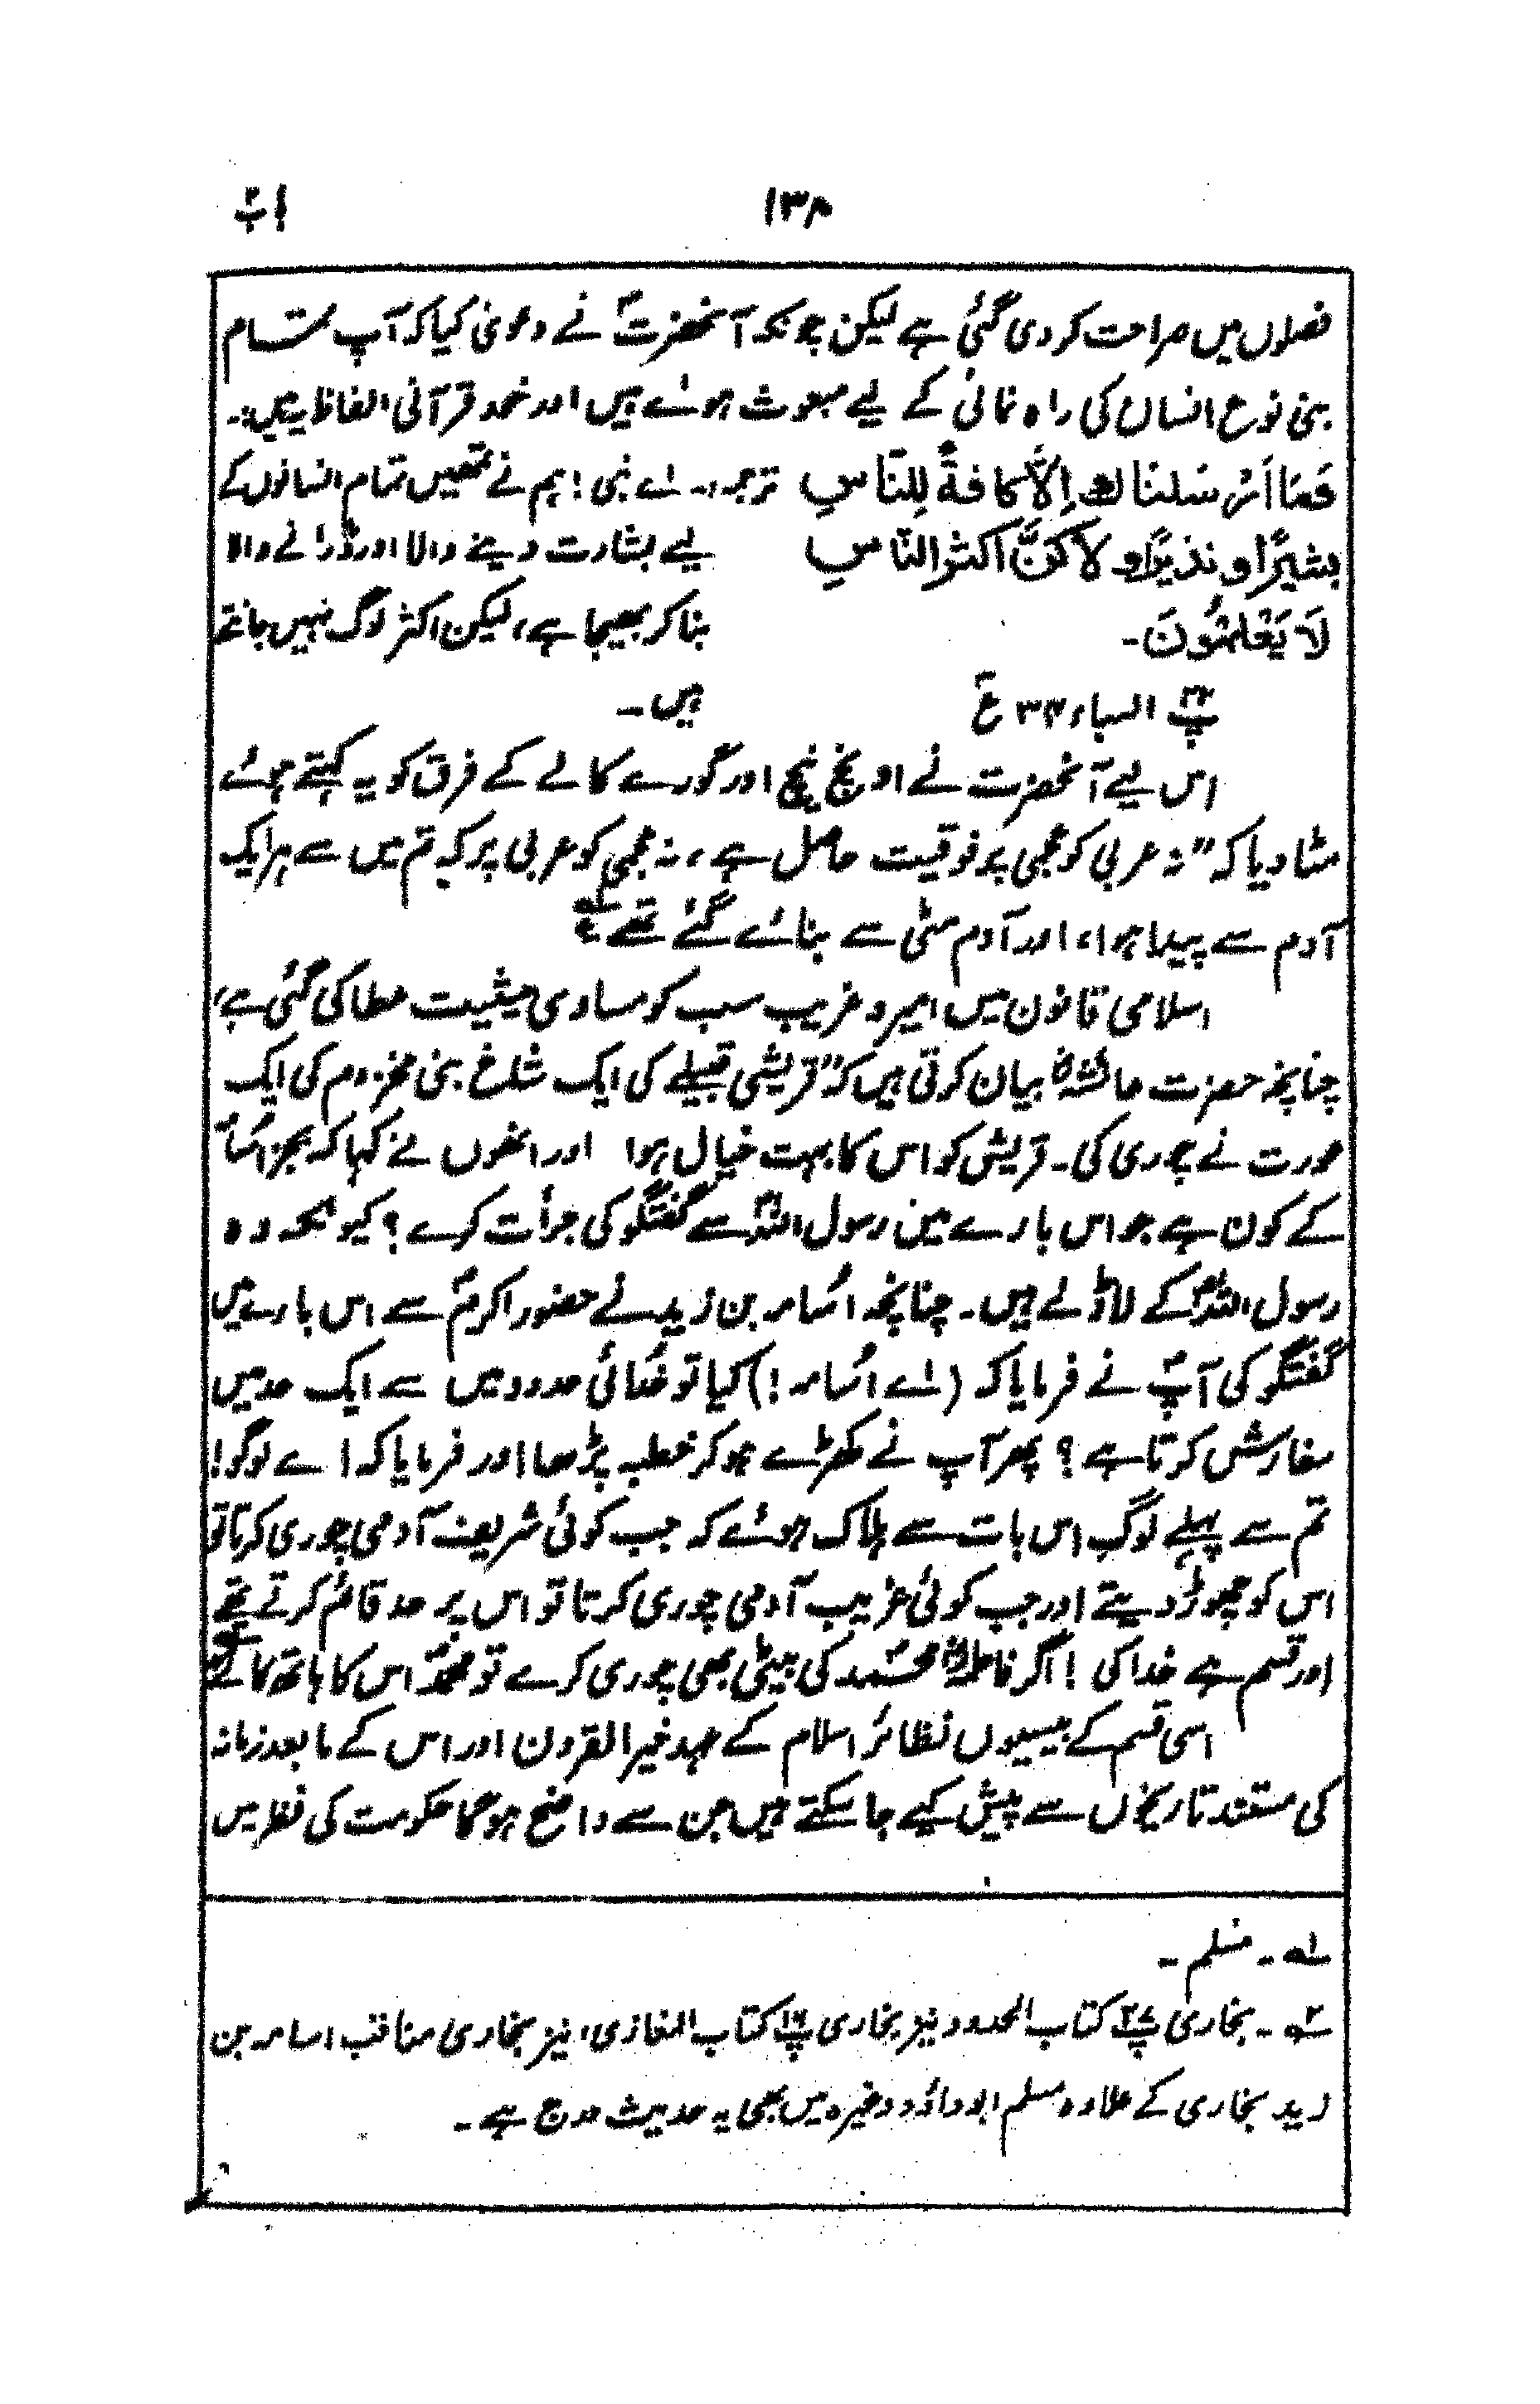 ۱۳۸
فصلوں میں صراحت کر دی گئی ہے لیکن چونکہ آنحضرتؐ نے دعویٰ کیا کہ آپ تمام
بنی نوع انسان کی راہ نمائی کے لیے مبعوث ہوئے ہیں اور خود قرآنی الفاظ یہ ہیں :۔
وَمَا اَرْسَلنَاكَ اِلَّا كَافةً لِلنَّاسِ ترجمہ:۔ اے نبی! ہم نے تمھیں تمام انسانوں کے
بشیرًا و نذیرًا و لاکنَّ اکثر الناسِ لیے بشارت دینے والا اور ڈرانے والا
لَا یَعْلَمُونَ۔ بنا کر بھیجا ہے، لیکن اکثر لوگ نہیں جانتے
پ۲۲ السباء ۳۴ ع ہیں ۔
اس لیے آنحضرت نے اونچ نیچ اور گورے کالے کے فرق کو یہ کہتے ہوئے
مٹا دیا کہ ”نہ عربی کو عجمی پر فوقیت حاصل ہے، نہ عجمی کو عربی پر کہ تم میں سے ہر ایک
آدم سے پیدا ہوا، اور آدم مٹی سے بنائے گئے تھے لہ“
اسلامی قانون میں امیر و غریب سب کو مساوی حیثیت عطا کی گئی ہے،
چنانچہ حضرت عائشہؓ بیان کرتی ہیں کہ ”قریشی قبیلے کی ایک شاخ بنی مخزوم کی ایک
عورت نے چوری کی۔ قریش کو اس کا بہت خیال ہوا اور انھوں نے کہا کہ بجز اُسامہ
کے کون ہے جو اس بارے میں رسول اللہؐ سے گفتگو کی جرأت کرے؟ کیونکہ وہ
رسول اللہؐ کے لاڈلے ہیں۔ چنانچہ اُسامہ بن زید نے حضور اکرمؐ سے اس بارے میں
گفتگو کی آپؐ نے فرمایا کہ (اے اُسامہ!) کیا تو خدائی حدود میں سے ایک حد میں
سفارش کرتا ہے؟ پھر آپ نے کھڑے ہو کر خطبہ پڑھا اور فرمایا کہ اے لوگو!
تم سے پہلے لوگ اس بات سے ہلاک ہوئے کہ جب کوئی شریف آدمی چوری کرتا تو
اس کو چھوڑ دیتے اور جب کوئی غریب آدمی چوری کرتا تو اس پر حد قائم کرتے تھے
اور قسم ہے خدا کی! اگر فاطمہؓ محمدؐ کی بیٹی بھی چوری کرے تو محمدؐ اس کا ہاتھ کاٹے
اسی قسم کے بیسیوں نظائر اسلام کے عہد خیر القرون اور اس کے ما بعد زمانہ
کی مستند تاریخوں سے پیش کیے جا سکتے ہیں جن سے واضح ہوگا حکومت کی نظر میں
لہ۔ مسلم۔
۲ہ۔ بخاری پ۲۷ کتاب الحدود نیز بخاری پ۱۷ کتاب المغازی، نیز بخاری مناقب اسامہ بن
زید بخاری کے علاوہ مسلم ابوداؤد وغیرہ میں بھی یہ حدیث درج ہے۔